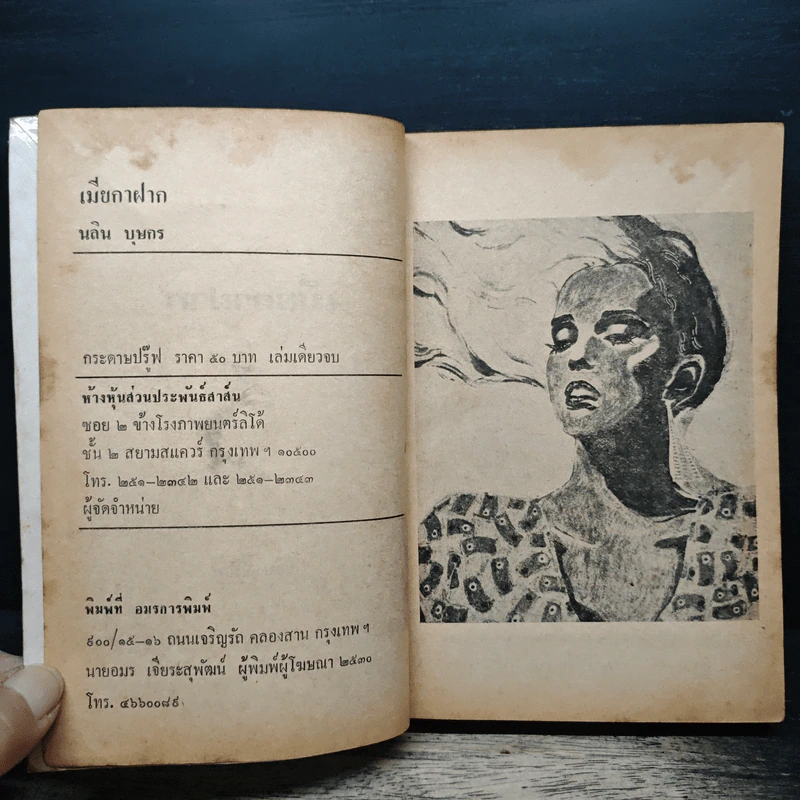 เมียกาฝาก
นลิน บุษกร
กระดาษปรู๊ฟ ราคา ๕๐ บาท เล่มเดียวจบ
ห้างหุ้นส่วนประพันธ์สาส์น
ซอย ๒ ข้างโรงภาพยนตร์ลิโด้
ชั้น ๒ สยามสแควร์ กรุงเทพ ฯ ๑๐๕๐๐
โทร. ๒๕๑-๒๓๔๒ และ ๒๕๑-๒๓๔๓
ผู้จัดจำหน่าย
พิมพ์ที่ อมรการพิมพ์
๙๐๐/๑๕-๑๖ ถนนเจริญรัถ คลองสาน กรุงเทพ ฯ
นายอมร เจียระสุพัฒน์ ผู้พิมพ์ผู้โฆษณา ๒๕๓๐
โทร. ๔๖๖๐๐๘๙